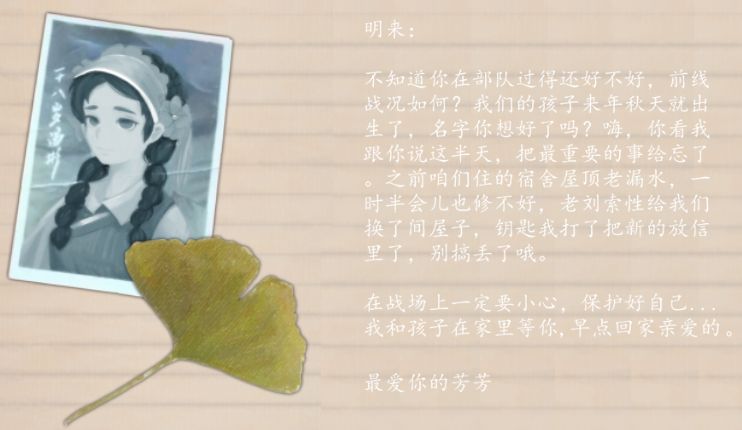 十八岁留影
明来：
不知道你在部队过得还好不好，前线
战况如何？我们的孩子来年秋天就出
生了，名字你想好了吗？嗨，你看我
跟你说这半天，把最重要的事给忘了
。之前咱们住的宿舍屋顶老漏水，一
时半会儿也修不好，老刘索性给我们
换了间屋子，钥匙我打了把新的放信
里了，别搞丢了哦。
在战场上一定要小心，保护好自己...
我和孩子在家里等你,早点回家亲爱的。
最爱你的芳芳